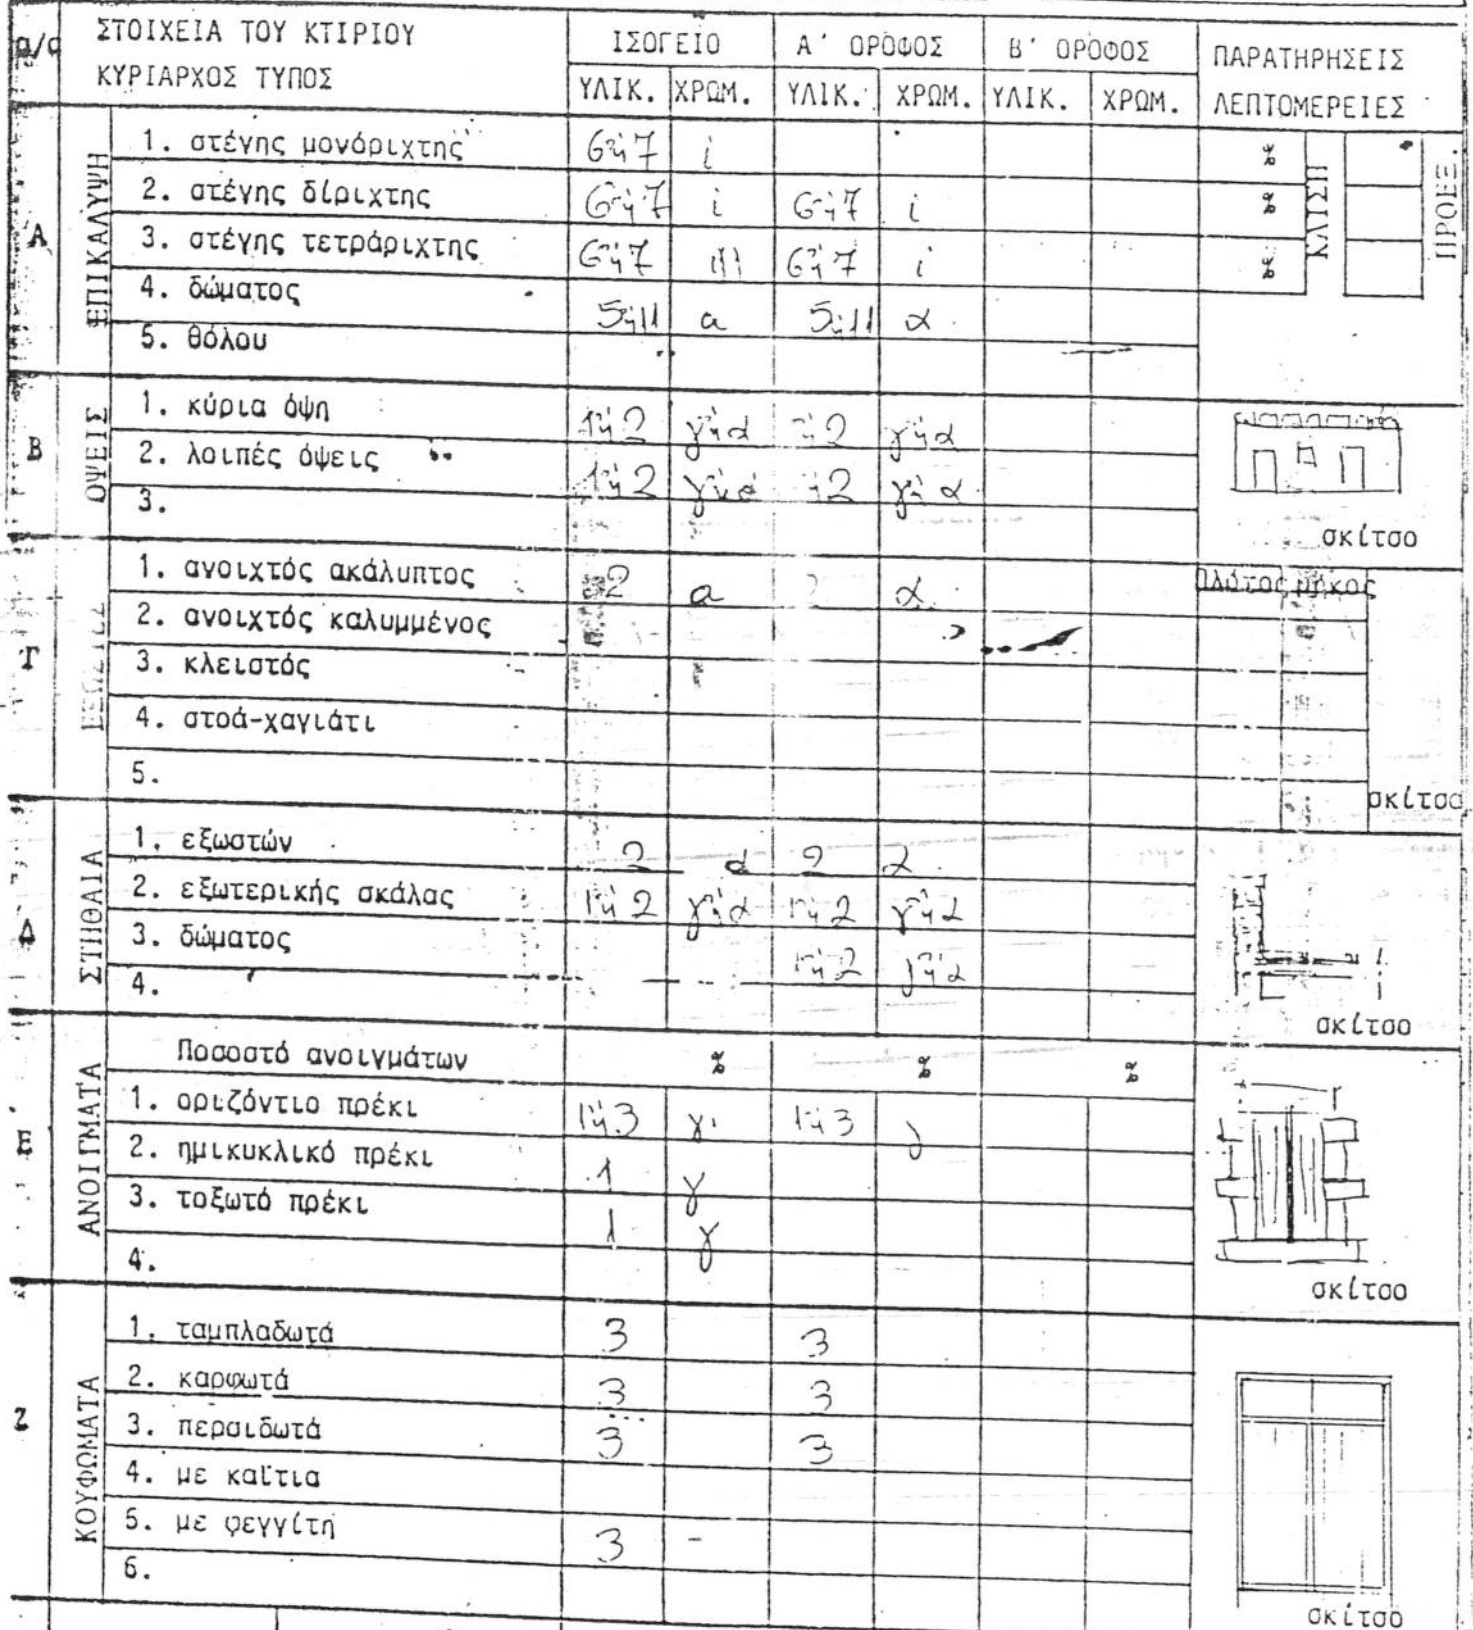 α/α ΣΤΟΙΧΕΙΑ ΤΟΥ ΚΤΙΡΙΟΥ ΙΣΟΓΕΙΟ Α' ΟΡΟΦΟΣ Β' ΟΡΟΦΟΣ ΠΑΡΑΤΗΡΗΣΕΙΣ
ΚΥΡΙΑΡΧΟΣ ΤΥΠΟΣ ΥΛΙΚ. ΧΡΩΜ. ΥΛΙΚ. ΧΡΩΜ. ΥΛΙΚ. ΧΡΩΜ. ΛΕΠΤΟΜΕΡΕΙΕΣ
Α ΕΠΙΚΑΛΥΨΗ
1. στέγης μονόριχτης 6ή7 i % ΚΛΙΣΗ ΠΡΟΕΞ.
2. στέγης δίριχτης 6ή7 i 6ή7 i %
3. στέγης τετράριχτης 6ή7 6ή7 i %
4. δώματος 5ή11 α 5ή11 α
5. θόλου
Β ΟΨΕΙΣ
1. κύρια όψη 1ή2 γήα 2 γήα
2. λοιπές όψεις 1ή2 γήα 2 γήα
3.
σκίτσο
Γ
1. ανοιχτός ακάλυπτος 2 α α Πλάτος μήκος
2. ανοιχτός καλυμμένος
3. κλειστός
4. στοά-χαγιάτι
5.
σκίτσο
Δ ΣΤΗΘΑΙΑ
1. εξωστών 2 α 2 α
2. εξωτερικής σκάλας 1ή2 γήα 1ή2 γήα
3. δώματος 1ή2 γήα
4.
σκίτσο
Ε ΑΝΟΙΓΜΑΤΑ
Ποσοστό ανοιγμάτων % % %
1. οριζόντιο πρέκι 1ή3 γ 1ή3 γ
2. ημικυκλικό πρέκι 1 γ
3. τοξωτό πρέκι 1 γ
4.
σκίτσο
Ζ ΚΟΥΦΩΜΑΤΑ
1. ταμπλαδωτά 3 3
2. καρφωτά 3 3
3. περσιδωτά 3 3
4. με καΐτια
5. με φεγγίτη 3 -
6.
σκίτσο